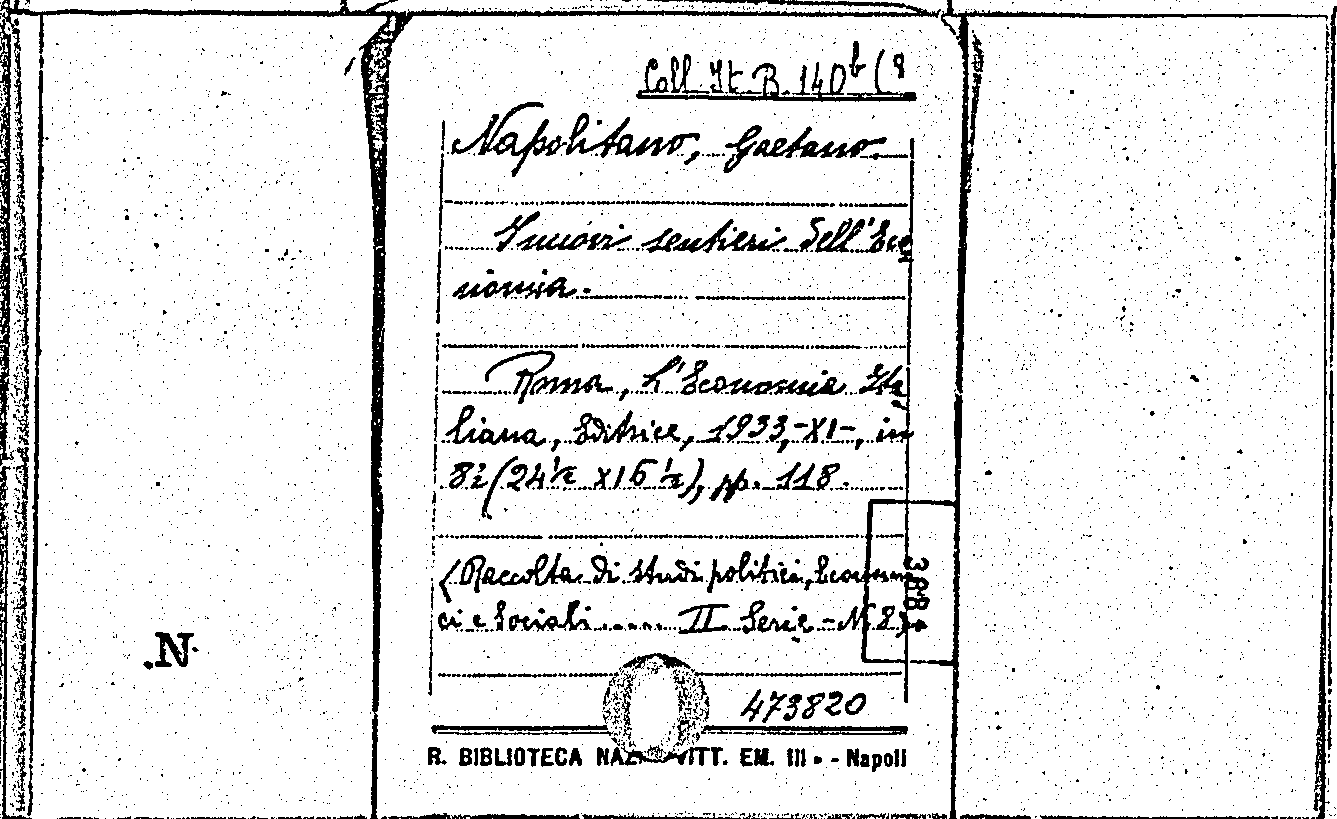 Coll. It. B. 140 b (8
Napolitano, Gaetano.
I nuovi sentieri dell'Eco
nomia.
Roma, L'Economia Ita
liana, Editrice, 1933, -XI-, in
8º (24½ x16 ½), pp. 118.
(Raccolta di studi politici, Economi
ci e Sociali ..... II Serie - N. 8)
3884
.N.
473820
R. BIBLIOTECA NAZ. VITT. EM. III - - Napoli